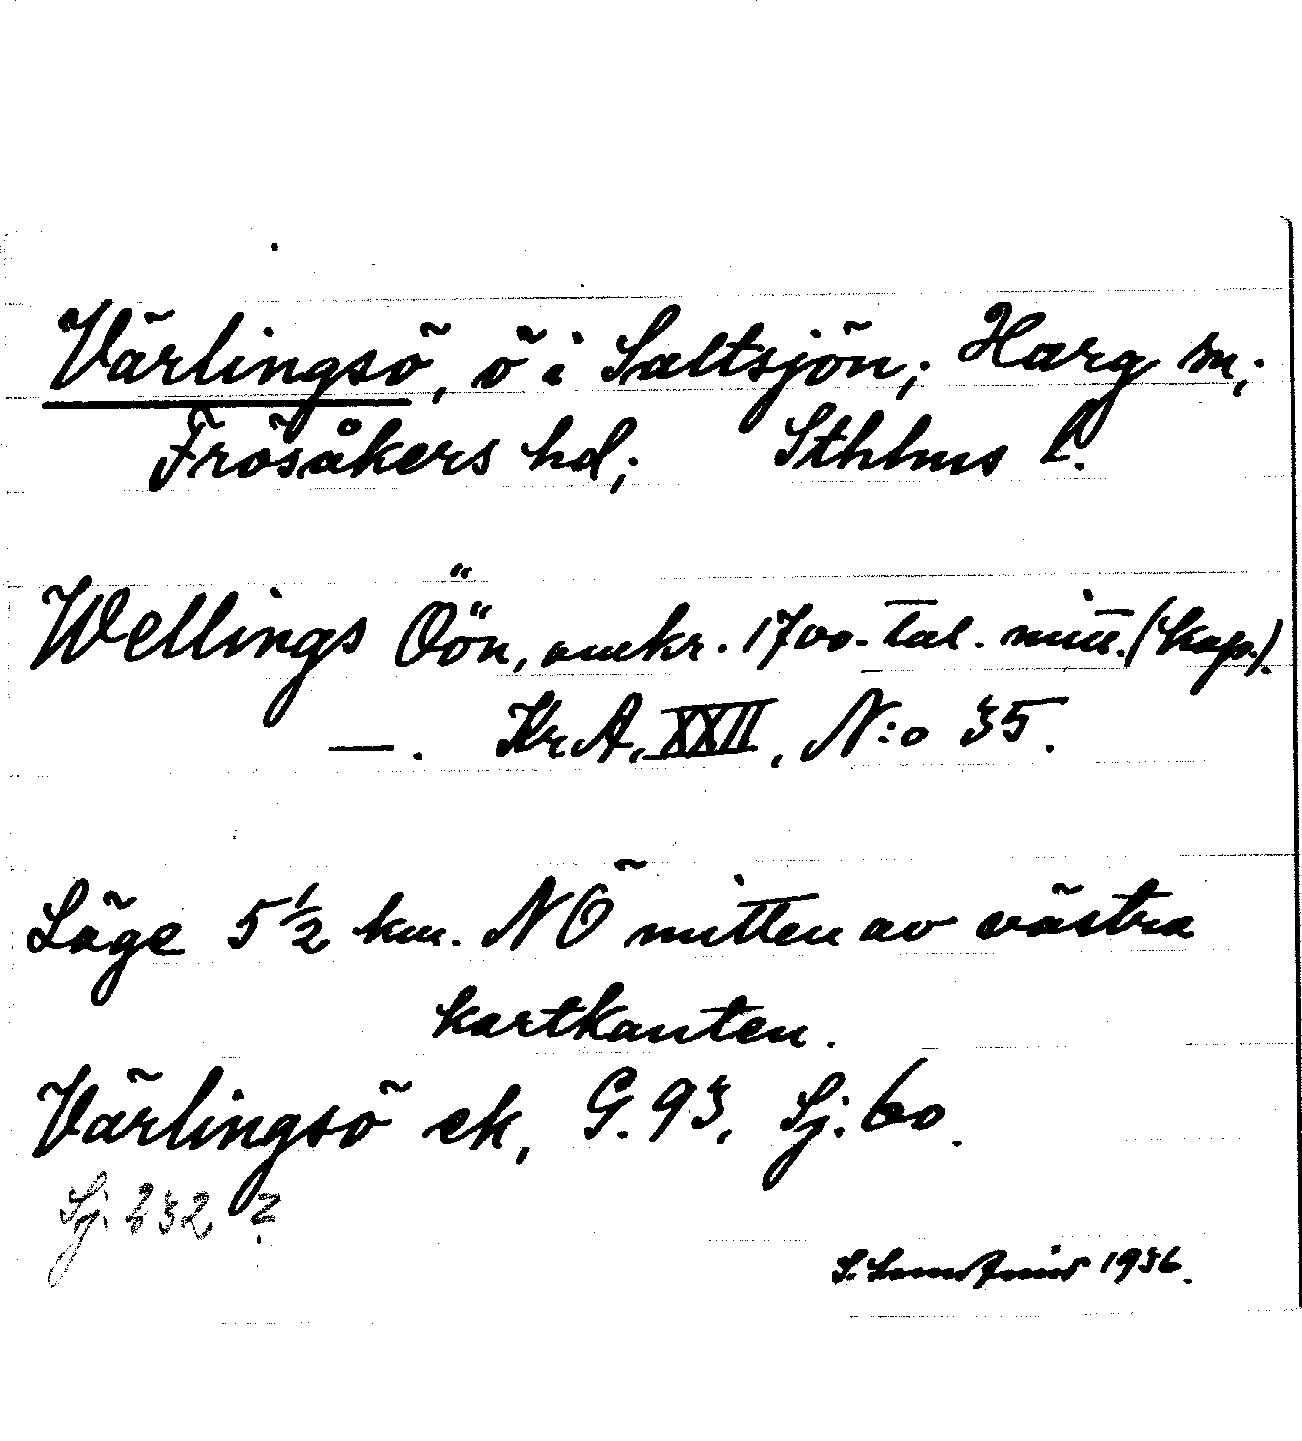 Värlingsö, ö i Saltsjön; Harg sn;
Frösåkers hd; Sthlms l.
Wellings Öön, omkr. 1700-tal. mitt. (Kop.)
—. Kr A, XXII, N:o 35.
Läge 5½ km. NÖ mitten av västra
kartkanten.
Värlingsö ek, G. 93, Sj. 60.
Sj. 232 ?
S. 1936.